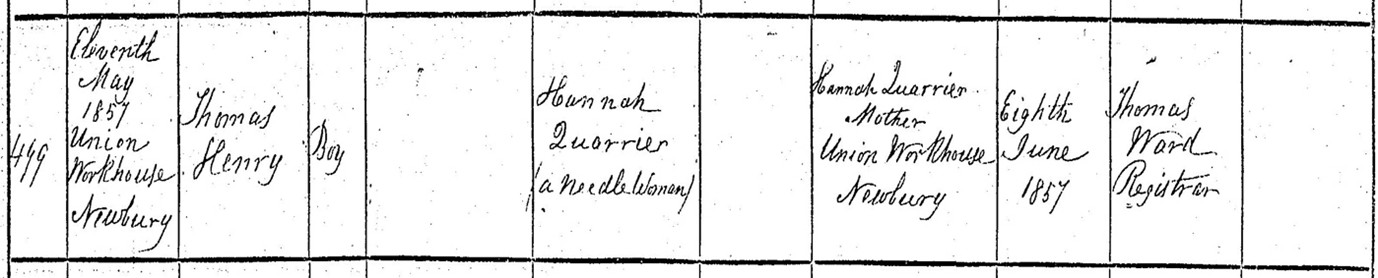 499
Eleventh
May
1857
Union
Workhouse
Newbury
Thomas
Henry
Boy
Hannah
Quarrier
(a Needle Woman)
Hannah Quarrier
Mother
Union Workhouse
Newbury
Eighth
June
1857
Thomas
Ward
Registrar